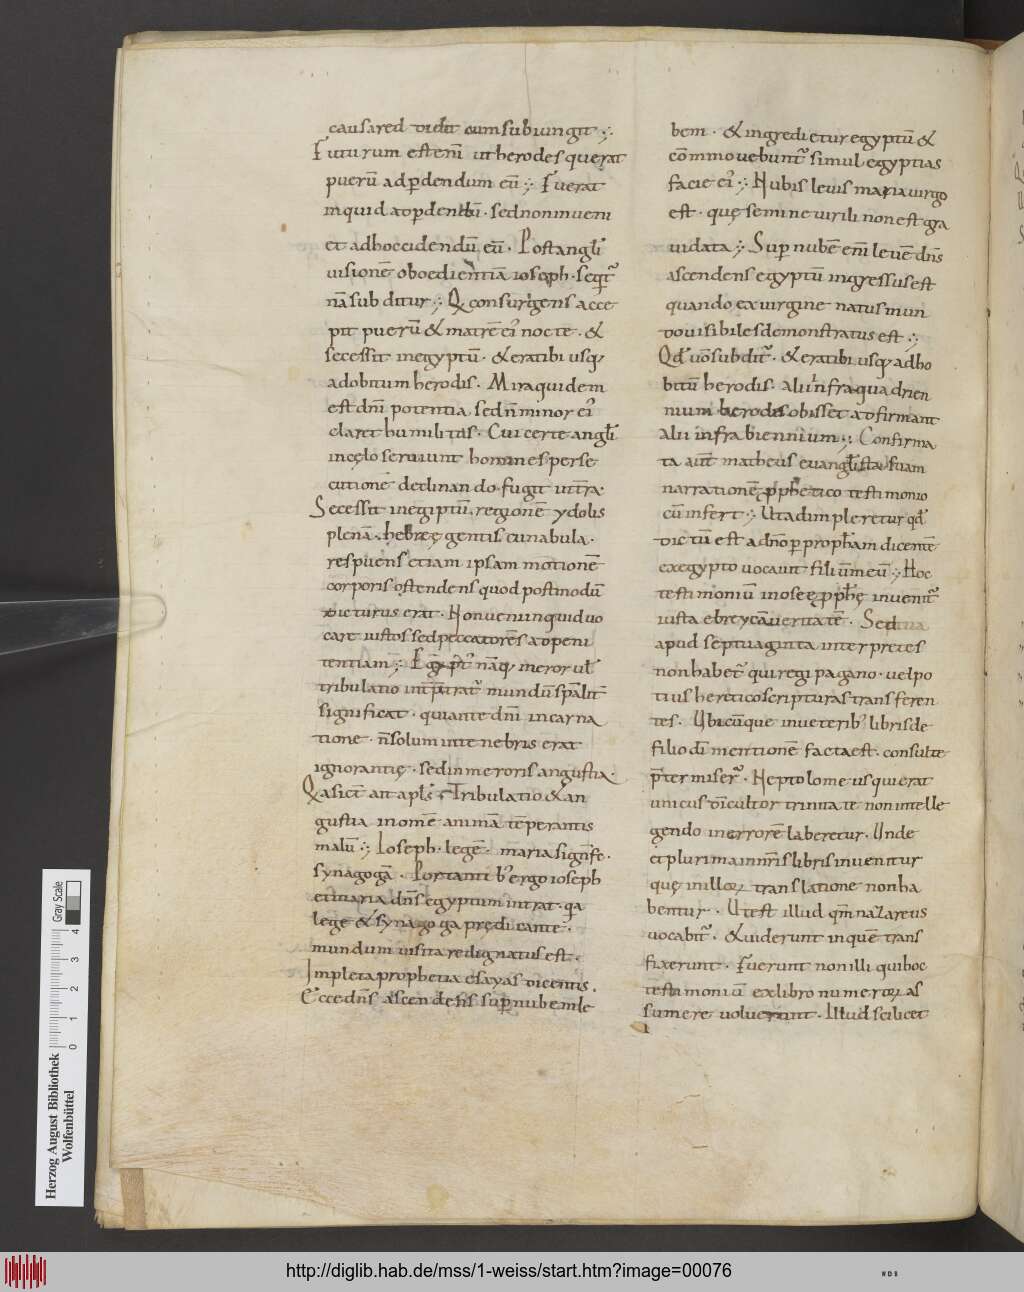 causa reddidit cum subiungit ·
Futurum est enī ut herodes querat
puerū ad perdendum eū · Fuerat
inquid ad perdendū · sed non inveni
et ad hoccidendū eū · Post angl̄i
uisionē oboedientiā ioseph · seq̄t᷒
nā subditur · Q consurgens acce
pit puerū & matrē ei᷒ nocte · &
secessit in egyptū · & erat ibi usq;
ad obitum herodis · Mira quidem
est dn̄i potentia sed n̄ minor ei᷒
claret humilitas · Cui certe angl̄i
in cęlo seruiunt homines perse
cutionē declinando · fugit ultra
Secessit in egiptū · regionē ydolis
plenā · hebreę gentis cunabula ·
respuens etiam ipsam motionē
corporis ostendens quod postmodū
dicturus erat · Non ueni inquid uo
care iustos sed peccatores ad peni
tentiam · Egypt᷒ nāq; meror ul̄
tribulatio interp̄tat᷒ mundū sp̄alit̄
significat · qui ante dn̄i incarna
tione · n̄ solum in tenebris erat
ignorantię · sed in meroris angustia ·
Q̄ asic̄t ait apl̄s · Tribulatio & an
gustia in omē animā tēperantis
malū · Ioseph · legē · maria signif̄e ·
synagogā · Portanti b᷒ ergo ioseph
et maria dn̄s egyptum intrat · q̄a
lege & synagoga prędicante ·
mundum uisitare dignatus est ·
Impleta prophetia esayas dicentis ·
Ecce dn̄s ascendens sup̄ nubem le
bem · & ingredietur egyptū &
cōmmouebunt᷒ simul egyptias
facie ei᷒ · Nubis leuis maria uirgo
est · quę semine uirili non est gra
uidata · Sup̄ nubē enī leuē dn̄s
ascendens egyptū ingressus est
quando ex uirgine natus mun
do uisibiles demonstratus est ·
Qd̄ uō subdit᷒ · & erat ibi usq; ad ho
bitū herodis · alii infra quadrien
nium herodis obisset adfirmant
Alii infra biennium · Confirma
ta aut̄ matheus euangl̄ista suam
narrationē p̄phetico testimonio
cū infert · Ut adimpleretur qd̄
dictū est a dn̄o per proph̄am dicentē
ex egypto uocaui filiū meū · Hoc
testimoniū in oseę p̄ph̄ę inuenit᷒
iuxta ebreycā ueritatē · Sed
apud septuaginta interpretes
non habet᷒ qui regi pagano · uel po
tius heretico scripturas transferen
tes · Ubicūque in ueterib᷒ libris de
filio dī mentionē facta est · consulte
p̄termiser᷒ · Ne ptolomeus qui erat
unicus dī cultor trinitate non intelle
gendo in errorē laberetur · Unde
et plurima in nr̄is libris inuenitur
quę in illoꝝ translatione non ha
bentur · Ut est illud qm̄ nazareus
uocabit᷒ · & uiderunt in quē trans
fixerunt · Fuerunt non illi qui hoc
testimoniū ex libro numeroꝝ as
sumere uoluerunt · Illud scilicet
Gray Scale
0 1 2 3 4
Herzog August Bibliothek
Wolfenbüttel
http://diglib.hab.de/mss/1-weiss/start.htm?image=00076